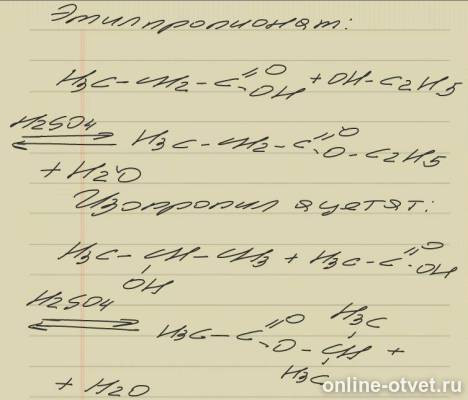 Этилпропионат:
H3C - CH2 - C =O - OH + OH - C2H5
H2SO4 ⇌ H3C - CH2 - C =O - O - C2H5
+ H2O
Изопропил ацетат:
H3C - CH - CH3 + H3C - C =O - OH
OH
H2SO4 ⇌ H3C - C =O - O - CH - H3C +
H3C
+ H2O
online-otvet.ru